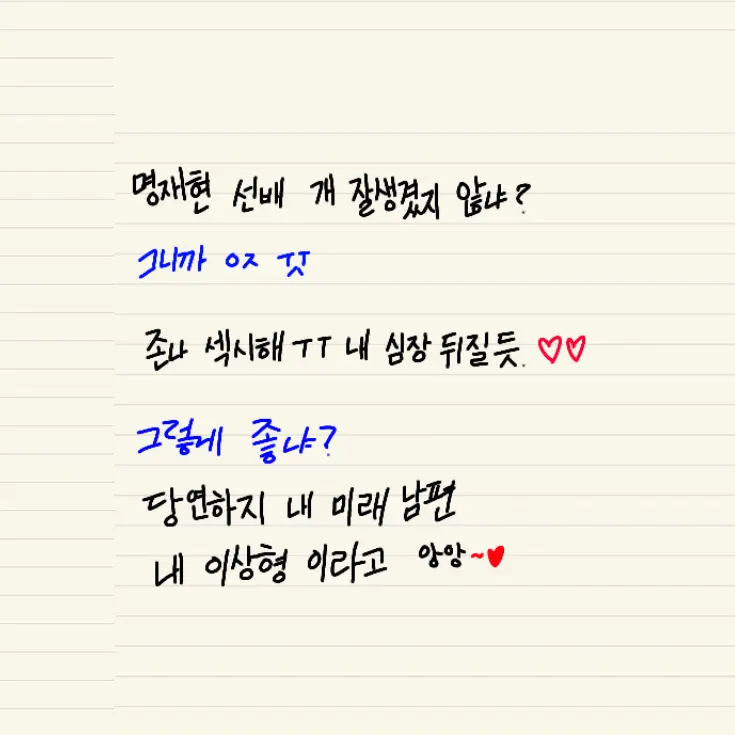 명재현 선배 개 잘생겼지 않냐?
그니까 ㅇㅈ
존나 섹시해 ㅜㅜ 내 심장 뒤질듯. ♡♡
그렇게 좋냐?
당연하지 내 미래 남편
내 이상형 이라고 앙앙~♥